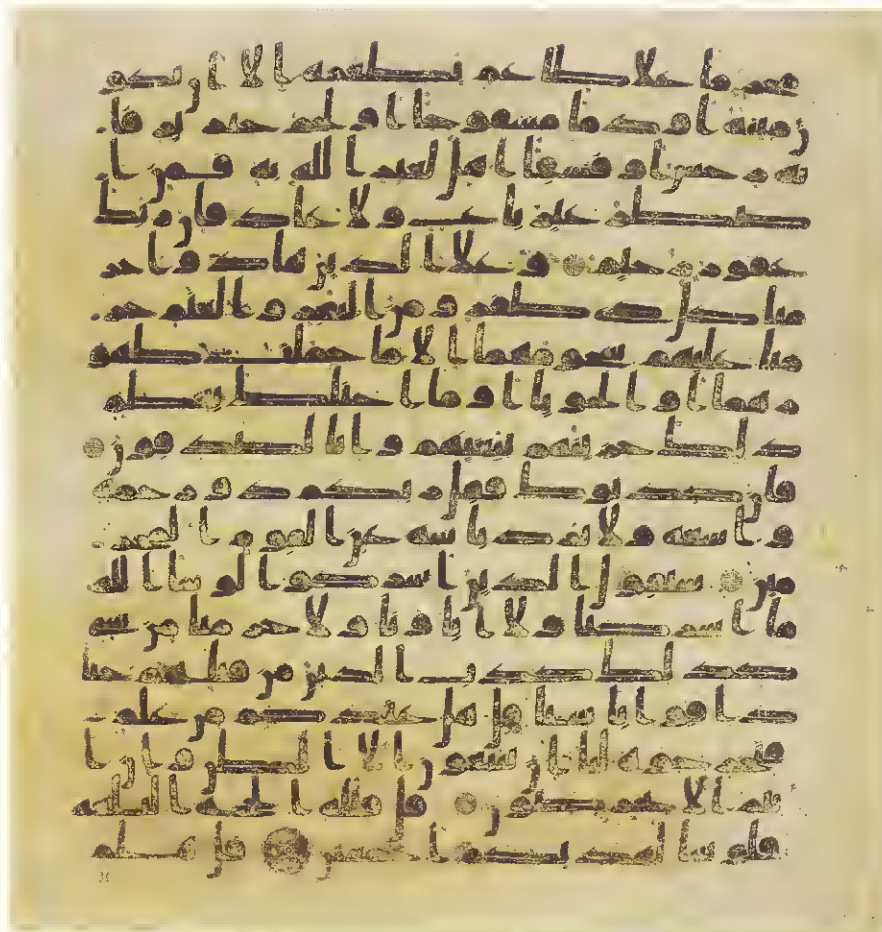 محرما على طاعم يطعمه الا ان يكو
ن ميتة او دما مسفوحا او لحم خنزير فا
نه رجس او فسقا اهل لغير الله به فمن ا
ضطر غير باغ ولا عاد فان ربك
غفور رحيم وعلى الذين هادوا حر
منا كل ذي ظفر ومن البقر والغنم حر
منا عليهم شحومهما الا ما حملت ظهو
رهما او الحوايا او ما اختلط بعظم
ذلك جزينهم ببغيهم وانا لصدقون
فان كذبوك فقل ربكم ذو رحمة
وسعة ولا يرد باسه عن القوم المجر
مين سيقول الذين اشركوا لو شا الله
ما اشركنا ولا اباونا ولا حرمنا من شي
كذلك كذب الذين من قبلهم حتى
ذاقوا باسنا قل هل عندكم من علم
فتخرجوه لنا ان تتبعون الا الظن وان ا
نتم الا تخرصون قل فلله الحجة البلغة
فلو شا لهديكم اجمعين قل هلم